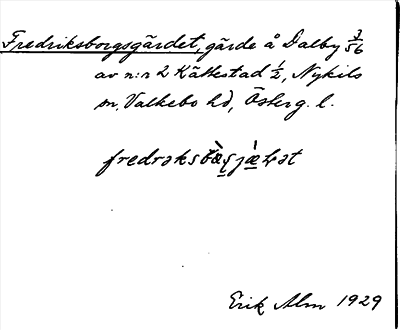 Fredriksborgsgärdet, gärde å Dalby 3/56
av n:r 2 Kättestad 1/2, Nykils
sn, Valkebo hd, Österg. l.
Erik Alm 1929